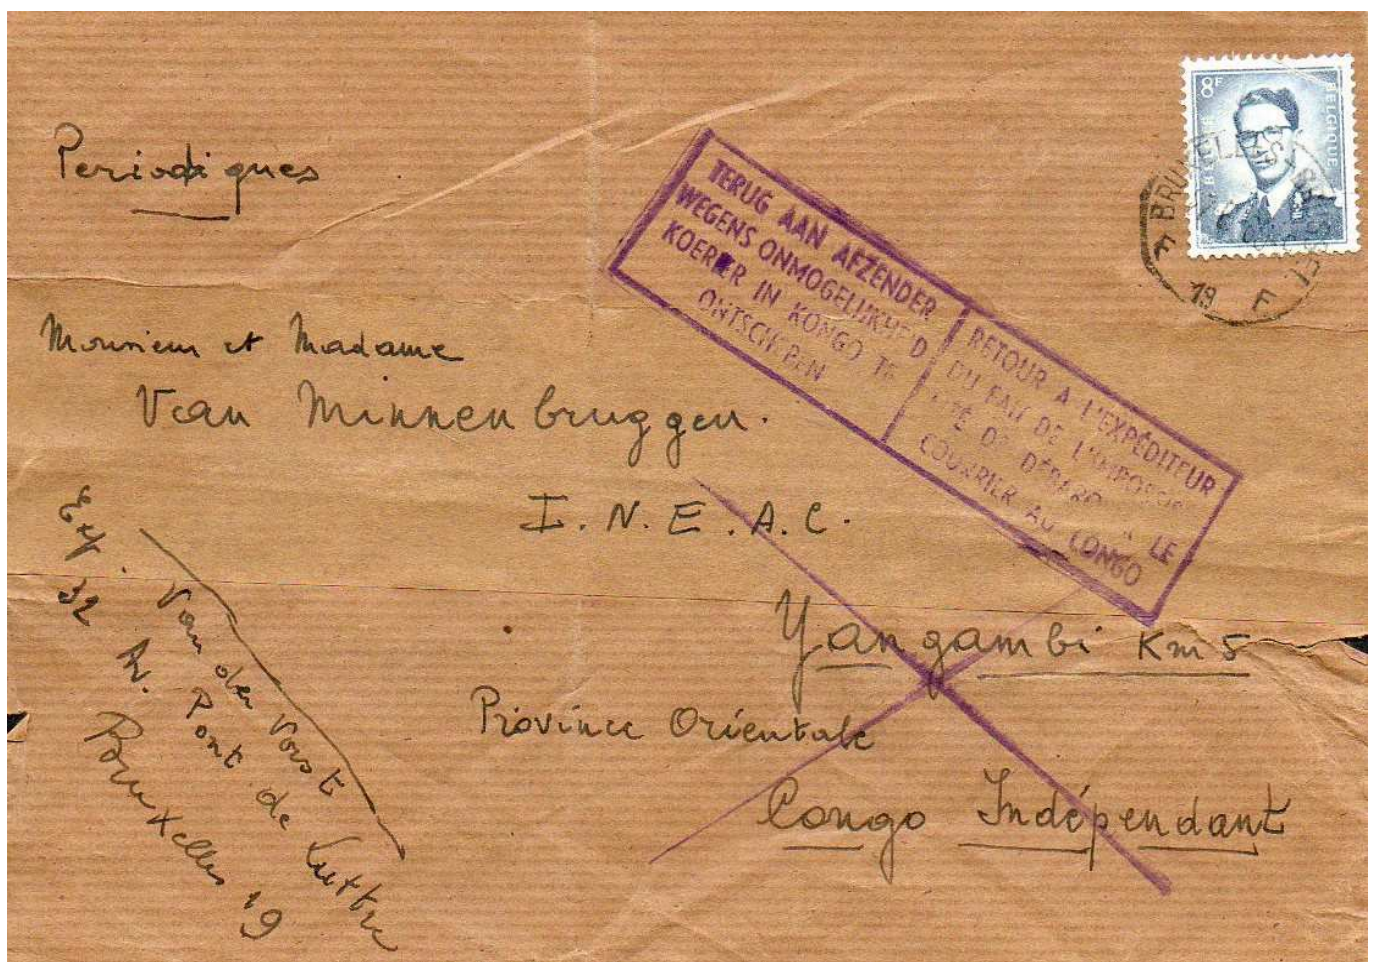 Periodiques
8F
BELGIQUE
BELGIË
BRUXELLES
F
19
F
TERUG AAN AFZENDER
WEGENS ONMOGELIJKHEID
KOERIER IN KONGO TE
ONTSCHEPEN
RETOUR A L'EXPÉDITEUR
DU FAIT DE L'IMPOSSI
ITÉ DE DÉBARQ LE
COURRIER AU CONGO
Monsieur et Madame
Van Minnenbruggen.
I.N.E.A.C.
Yangambi Km 5
Province Orientale
Congo Indépendant
Exp. Van der Vorst
32 Av. Pont de Luttre
Bruxelles 19